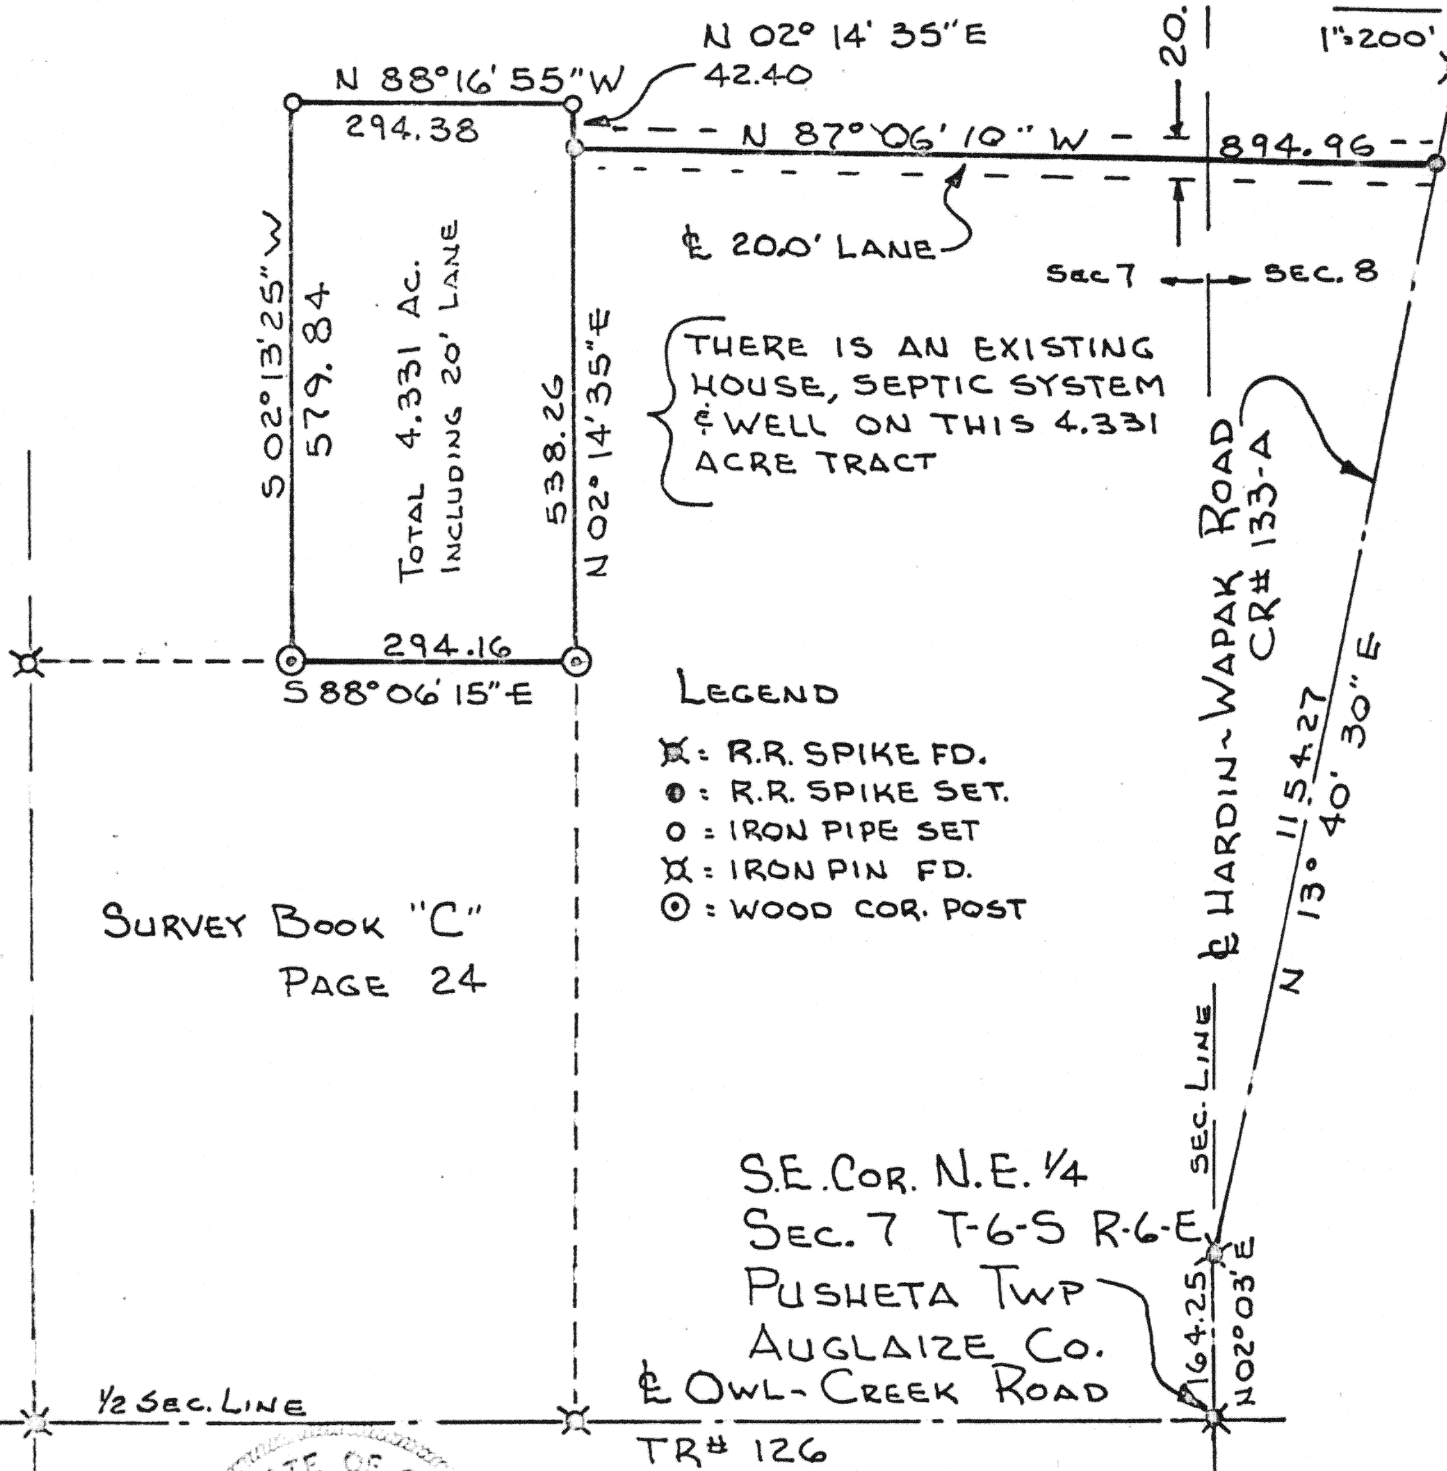 N 02° 14' 35" E
42.40
20.
1"=200'
N 88° 16' 55" W
294.38
N 87° 06' 10" W
894.96
℄ 20.0' LANE
Sec 7
SEC. 8
S 02° 13' 25" W
579.84
TOTAL 4.331 AC.
INCLUDING 20' LANE
538.26
N 02° 14' 35" E
THERE IS AN EXISTING
HOUSE, SEPTIC SYSTEM
& WELL ON THIS 4.331
ACRE TRACT
℄ HARDIN~WAPAK ROAD
CR# 133-A
294.16
S 88° 06' 15" E
LEGEND
: R.R. SPIKE FD.
: R.R. SPIKE SET.
: IRON PIPE SET
: IRON PIN FD.
: WOOD COR. POST
1154.27
N 13° 40' 30" E
SURVEY BOOK "C"
PAGE 24
SEC. LINE
S.E. COR. N.E. 1/4
SEC. 7 T-6-S R-6-E
PUSHETA TWP
AUGLAIZE CO.
164.25
N 02° 03' E
℄ OWL-CREEK ROAD
1/2 SEC. LINE
TR# 126
TE OF